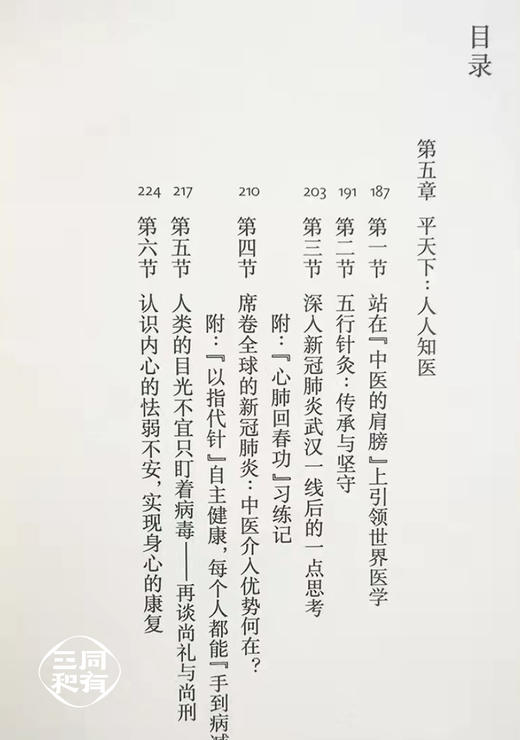 目录
第五章 平天下：人人知医
187 第一节 站在『中医的肩膀』上引领世界医学
191 第二节 五行针灸：传承与坚守
203 第三节 深入新冠肺炎武汉一线后的一点思考
附：『心肺回春功』习练记
210 第四节 席卷全球的新冠肺炎：中医介入优势何在？
附：『以指代针』自主健康，每个人都能『手到病减
217 第五节 人类的目光不宜只盯着病毒——再谈尚礼与尚刑
224 第六节 认识内心的怯弱不安，实现身心的康复
三同
和有